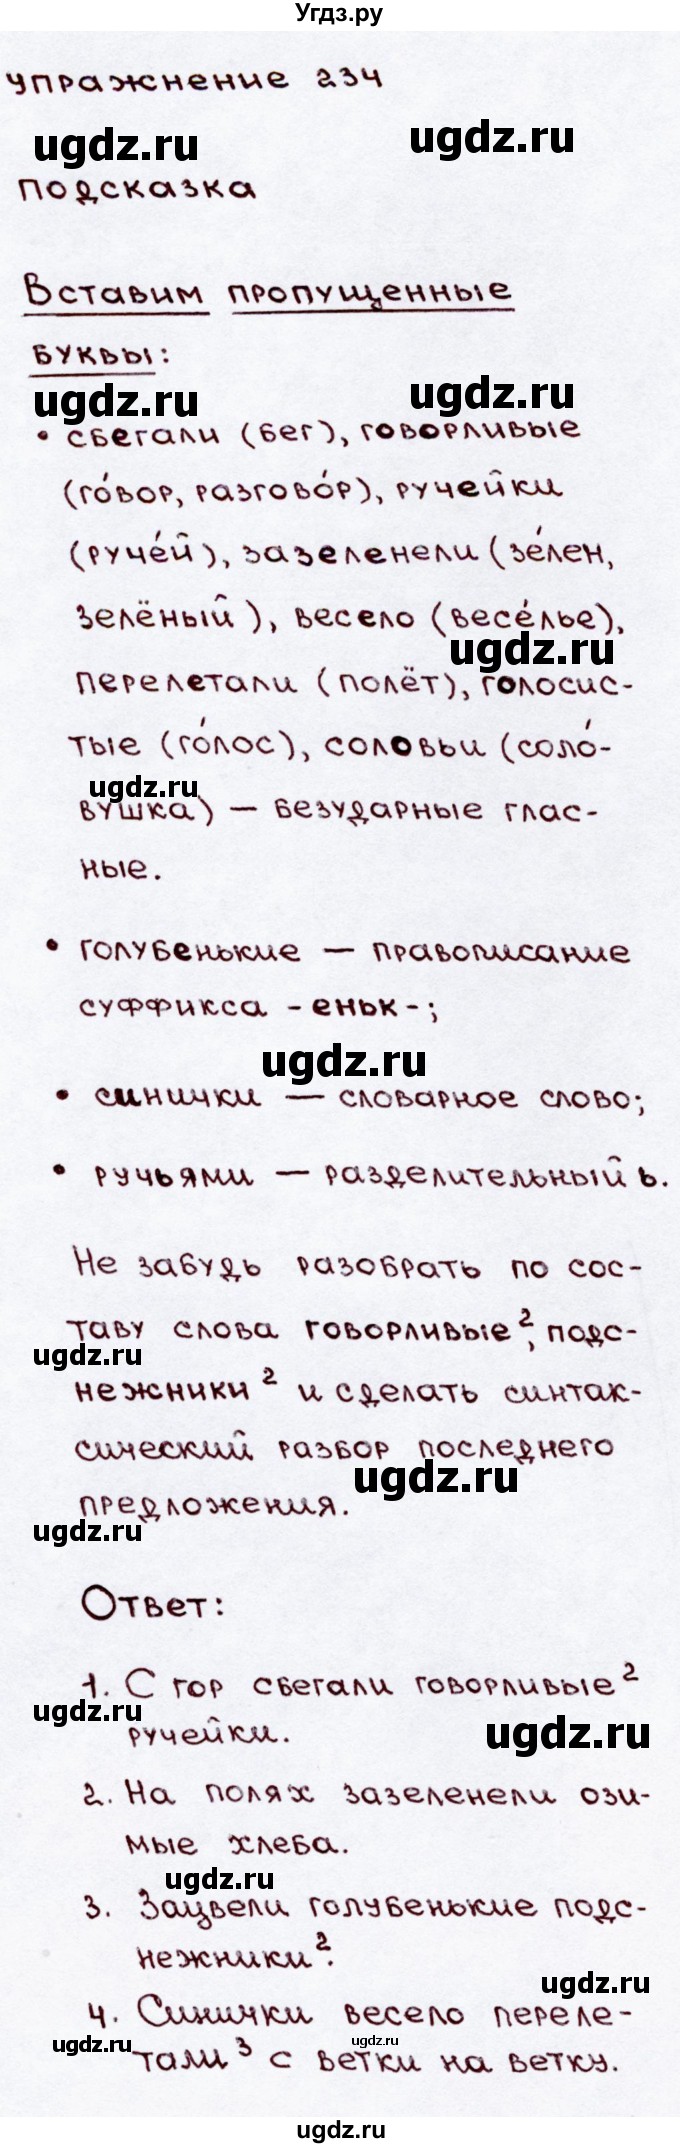 Угдз.ру
упражнение 234
ugdz.ru ugdz.ru
подсказка
Вставим пропущенные
буквы:
ugdz.ru ugdz.ru
• сбегали (бег), говорливые
(го́вор, разгово́р), ручейки
(руче́й), зазеленели (зе́лен,
зелёный), весело (весе́лье),
ugdz.ru
перелетали (полёт), голосис-
тые (го́лос), соловьи (соло́-
ugdz.ru
вушка) — безударные глас-
ные.
• голубенькие — правописание
суффикса -еньк-;
ugdz.ru
• синички — словарное слово;
• ручьями — разделительный ь.
Не забудь разобрать по сос-
таву слова говорливые², подс-
ugdz.ru
нежники² и сделать синтак-
сический разбор последнего
ugdz.ru
предложения.
ugdz.ru
Ответ:
1. С гор сбегали говорливые²
ugdz.ru
ручейки.
ugdz.ru
2. На полях зазеленели ози-
мые хлеба.
ugdz.ru
3. Зацвели голубенькие подс-
нежники².
ugdz.ru
4. Синички весело переле-
ugdz.ru ugdz.ru
тали³ с ветки на ветку.
ugdz.ru